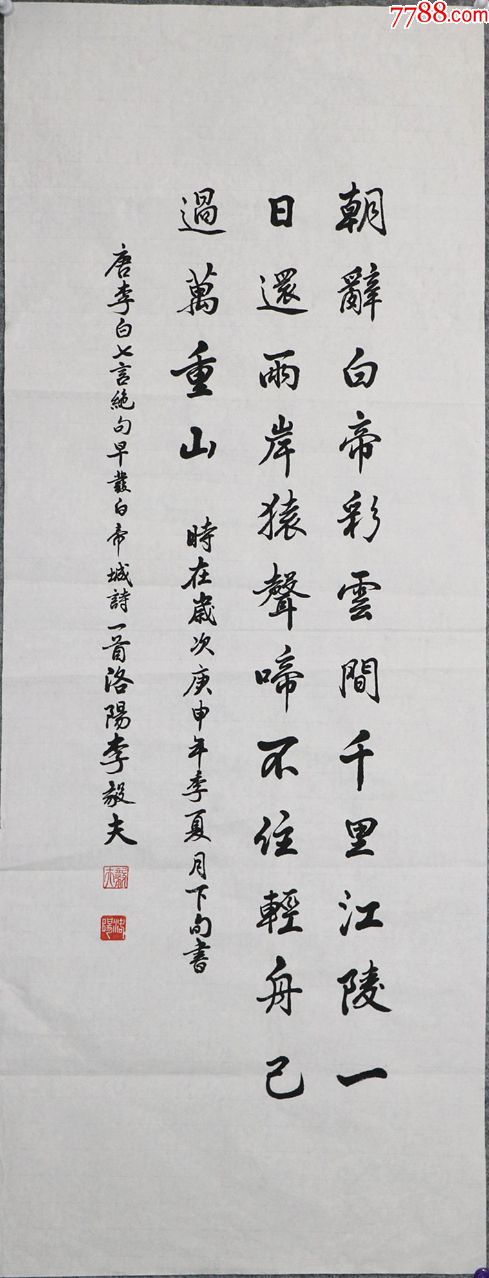 7788.com
朝辭白帝彩雲間千里江陵一
日還兩岸猿聲啼不住輕舟已
過萬重山
時在歲次庚申年季夏月下旬書
唐李白七言絶句早發白帝城詩一首洛陽李毅夫
毅夫
洛陽